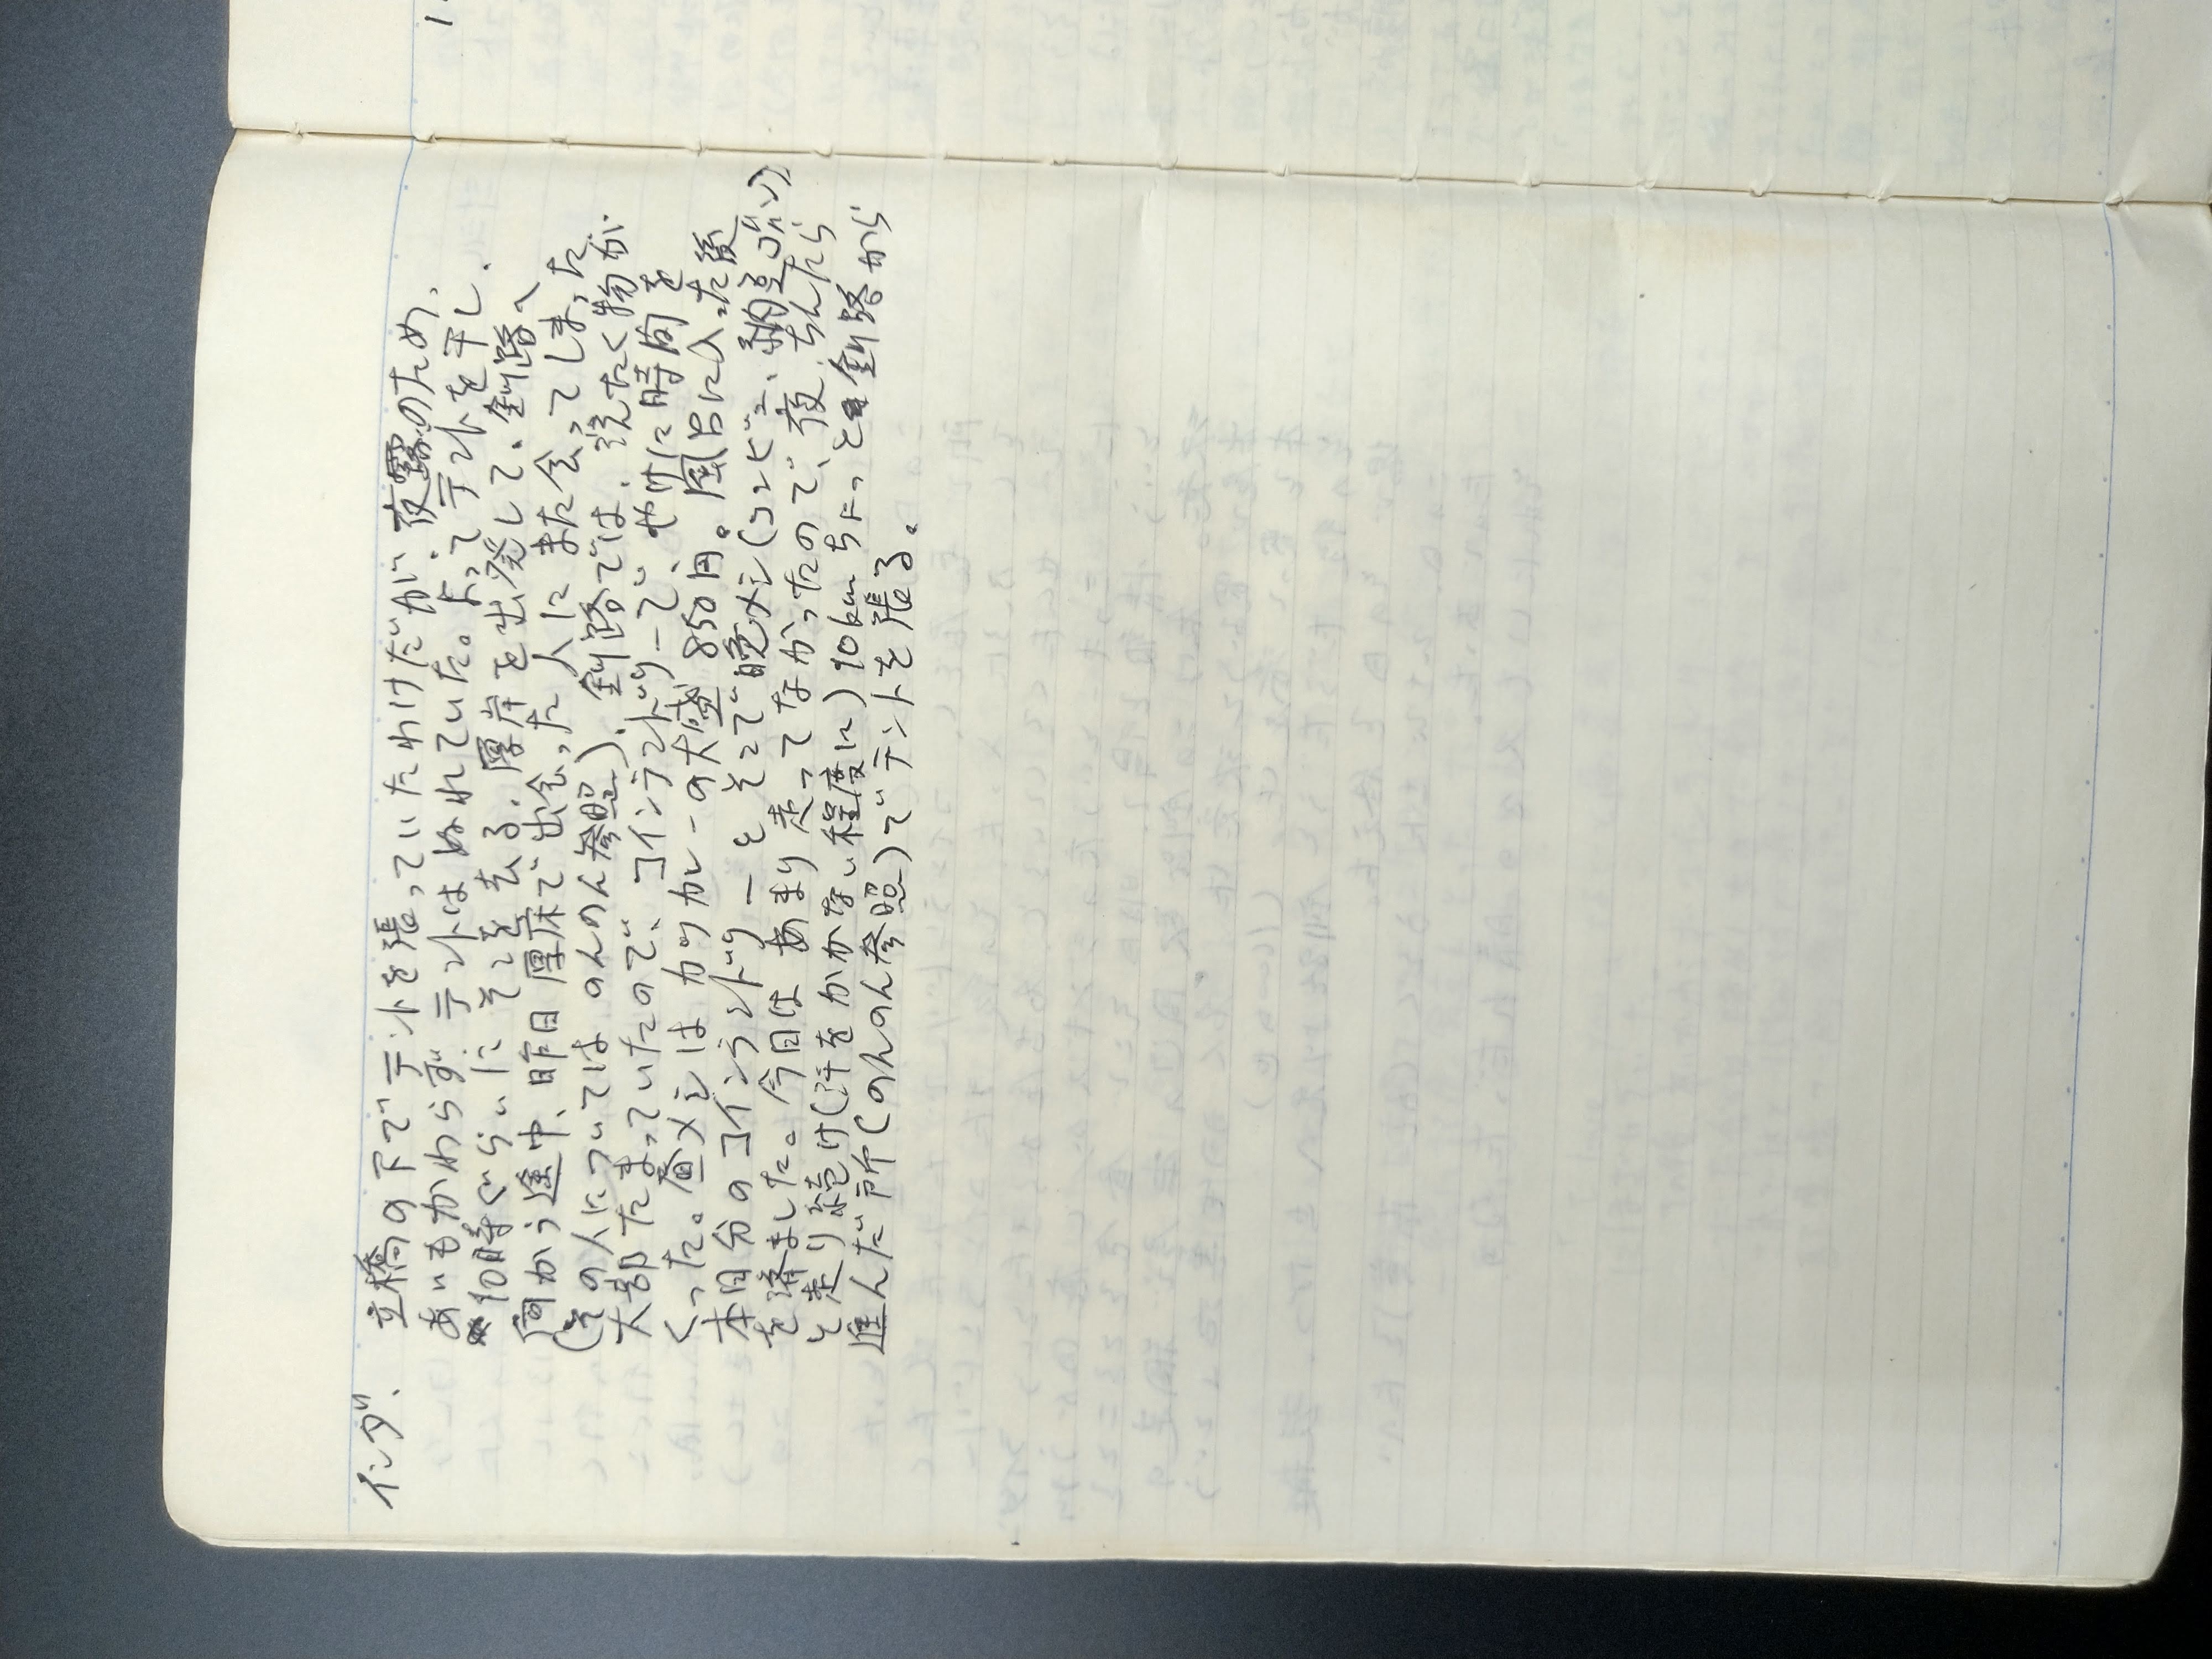 インダ、 立橋の下でテントを張っていたわけだが、夜露のため、
あいもかわらずテントはぬれていた。よってテントを干し、
10時ぐらいにそこを去る。厚岸を出発して、釧路へ
向かう途中、昨日厚床で出会った人にまた会ってしまった
(その人についてはのんのん参照)。釧路では、洗たく物が
大部たまっていたので、コインランドリーで、やけに時間を
くった。昼メシはカツカレーの大盛850円。風呂に入った後
本日分のコインランドリーとそこで晩メシ(コンビニ、納豆ごはん)
を済ました。今日はあまり走ってなかったので、夜、ちんたら
と走り続け(汗をかかない程度に)10kmちょっと釧路から
進んだ所(のんのん参照)でテントを張る。